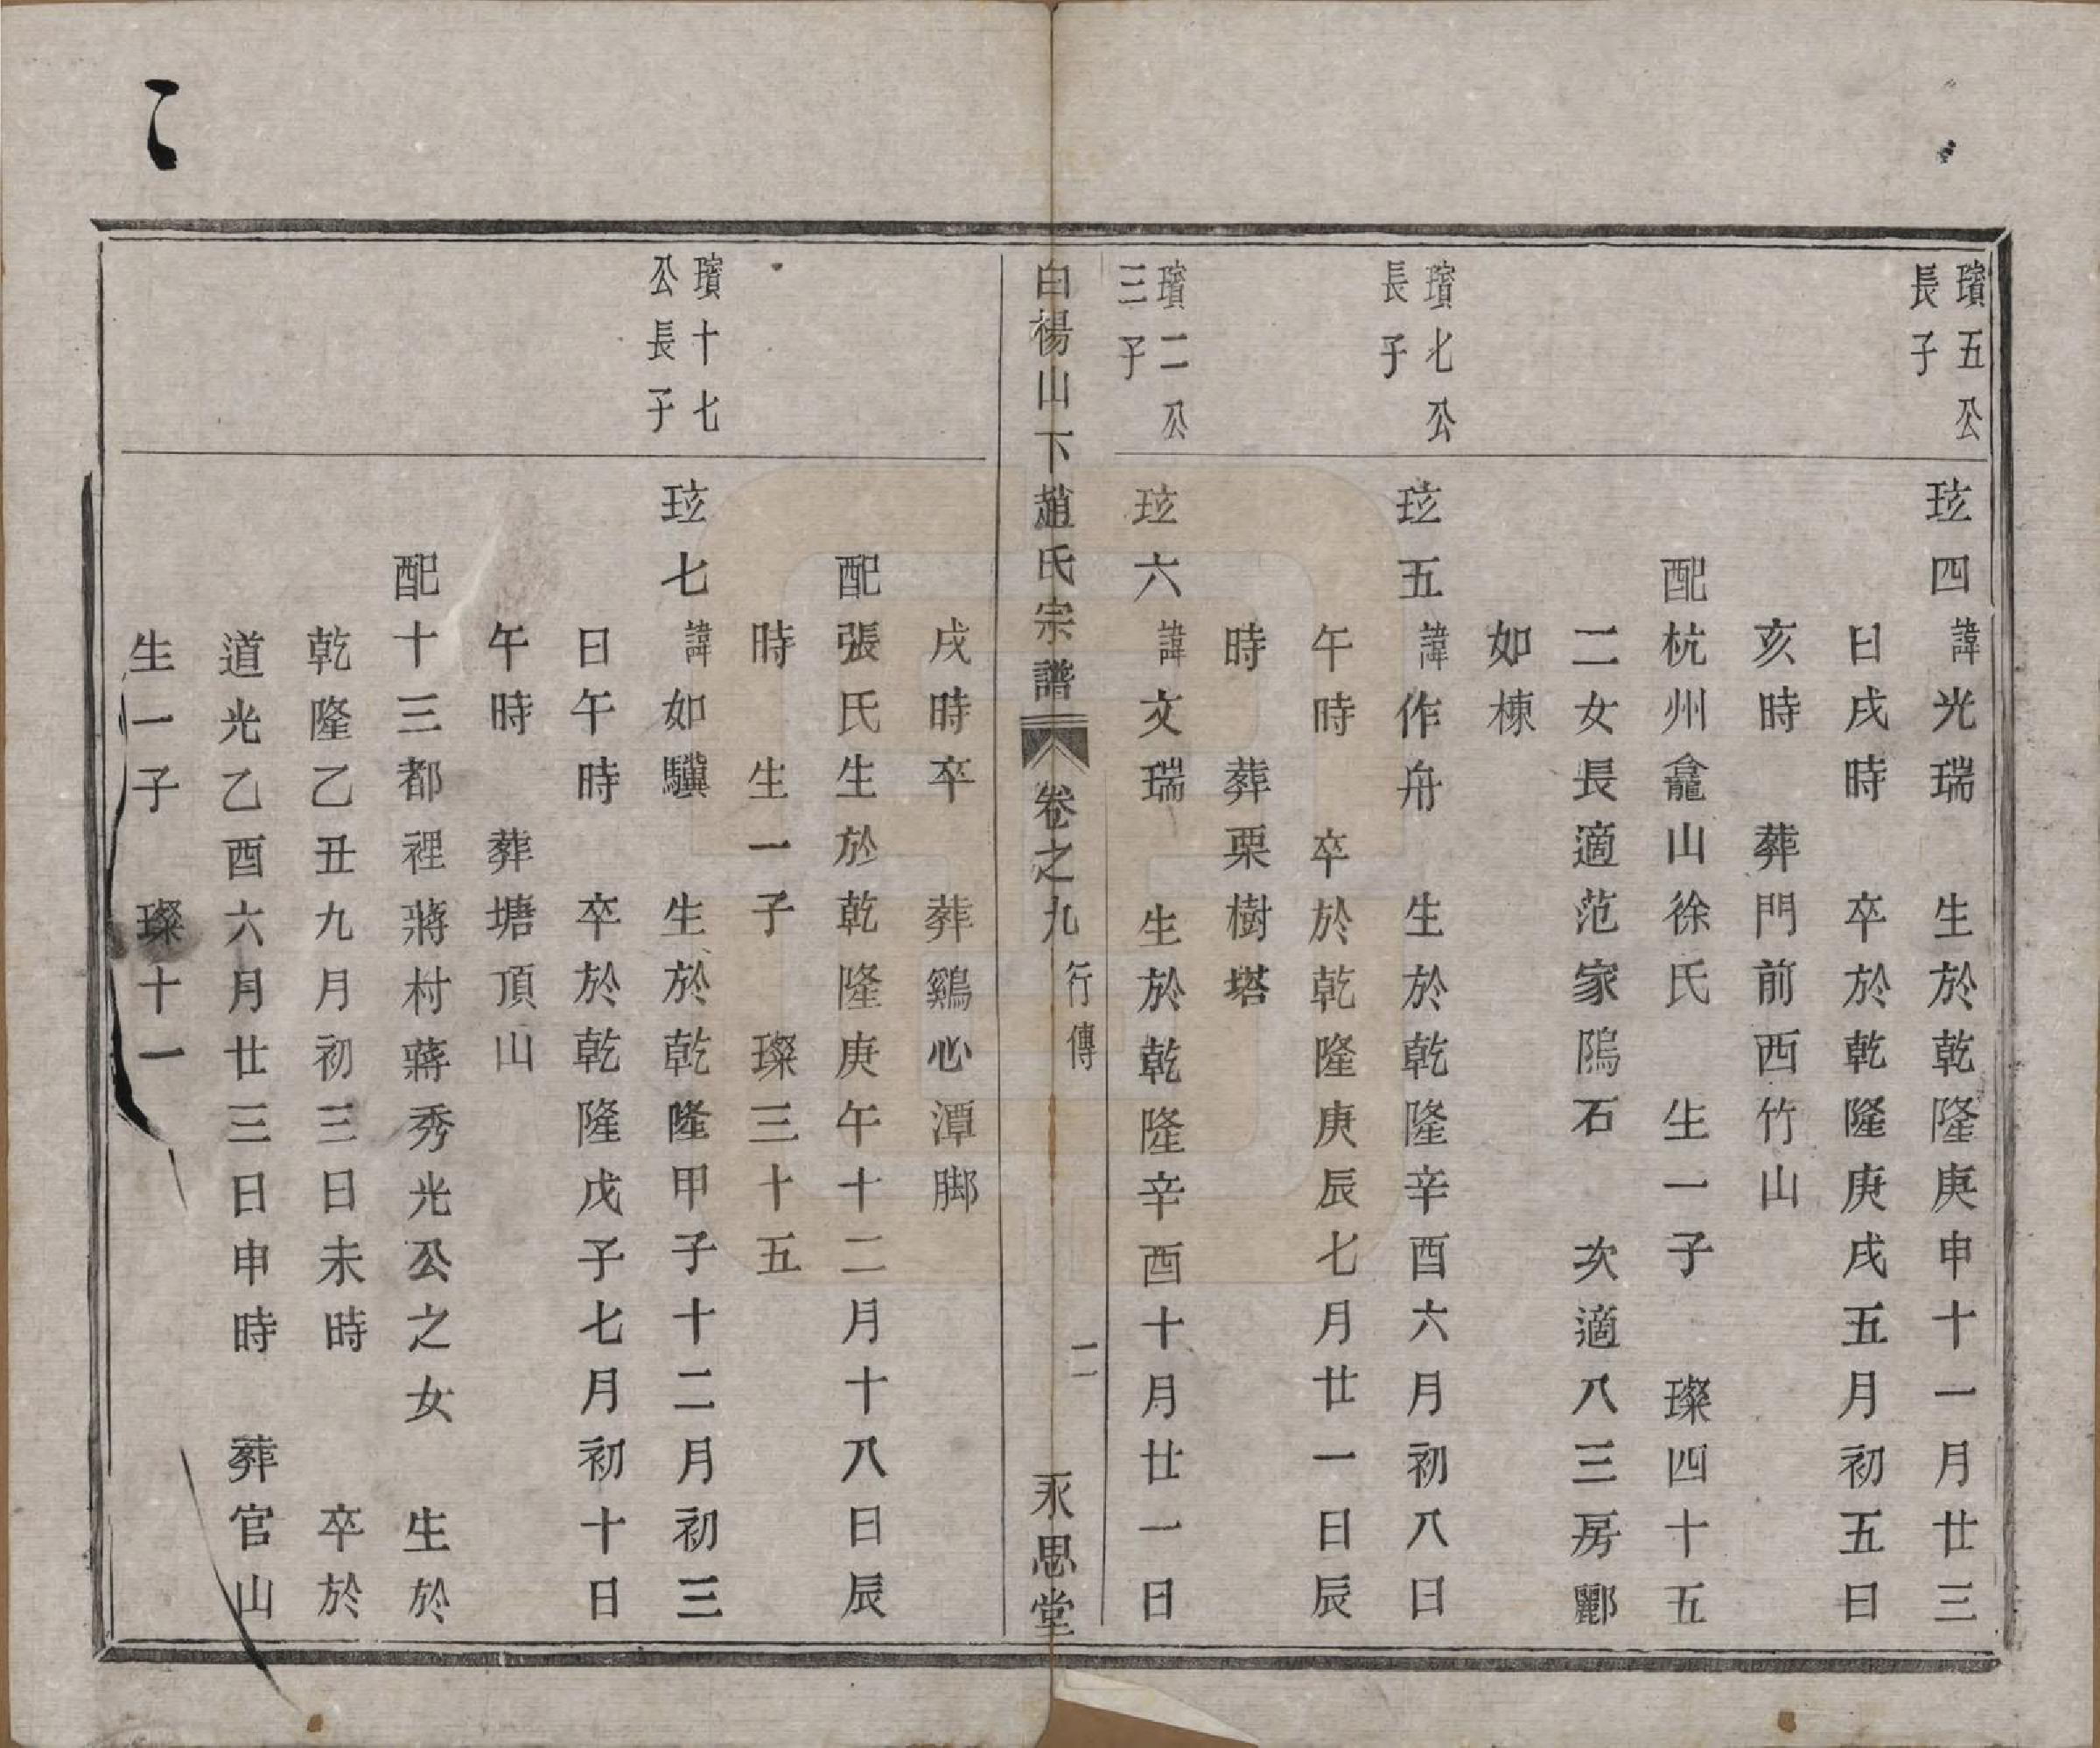 璸五公
長子
玹四諱光瑞 生於乾隆庚申十一月廿三
日戌時 卒於乾隆庚戌五月初五日
亥時 葬門前西竹山
配杭州龕山徐氏 生一子 璨四十五
二女長適范家隖石 次適八三房酈
如棟
璸七公
長子
玹五諱作舟 生於乾隆辛酉六月初八日
午時 卒於乾隆庚辰七月廿一日辰
時 葬栗樹塔
璸二公
三子
玹六諱文瑞 生於乾隆辛酉十月廿一日
白楊山下趙氏宗譜 卷之九 行傳 二 永思堂
戌時卒 葬鷄心潭脚
配張氏生於乾隆庚午十二月十八日辰
時 生一子 璨三十五
璸十七
公長子
玹七諱如驥 生於乾隆甲子十二月初三
日午時 卒於乾隆戊子七月初十日
午時 葬塘頂山
配十三都裡蔣村蔣秀光公之女 生於
乾隆乙丑九月初三日未時 卒於
道光乙酉六月廿三日申時 葬官山
生一子 璨十一